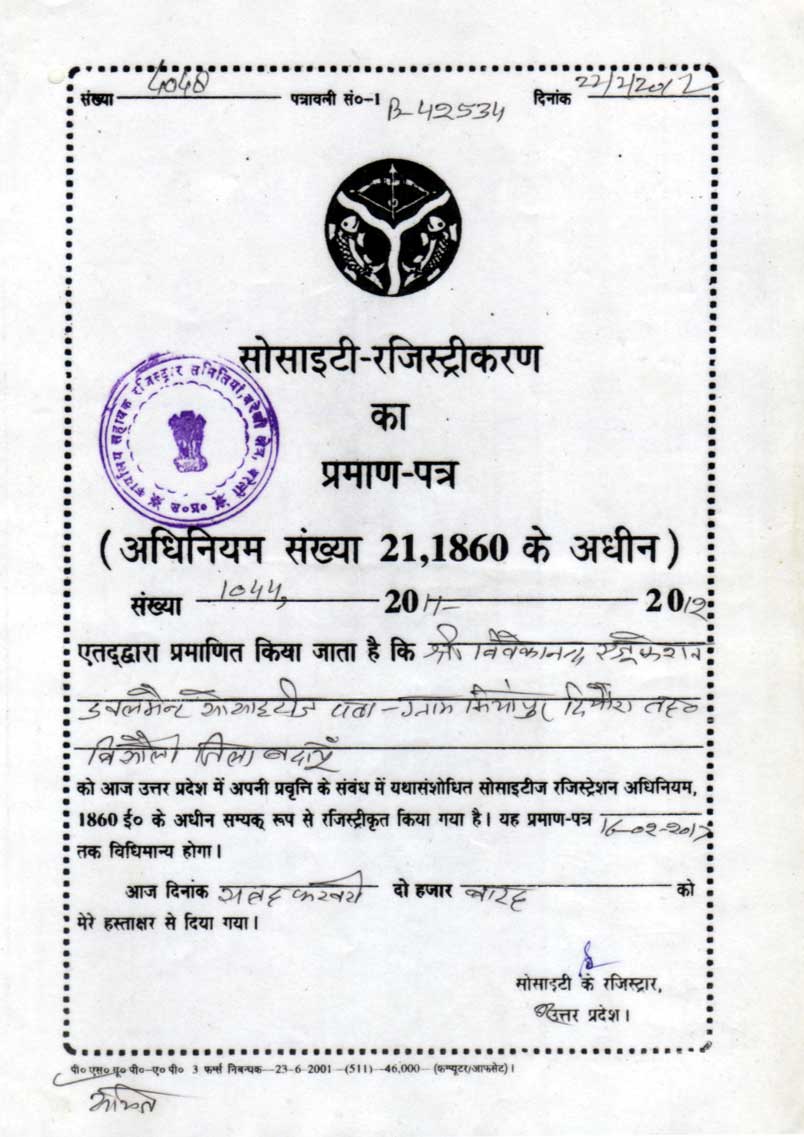 संख्या 4048 पत्रावली सं०-1 B-42534 दिनांक 22/2/2012
सोसाइटी-रजिस्ट्रीकरण
का
प्रमाण-पत्र
कार्यालय सहायक रजिस्ट्रार समितियां, बरेली क्षेत्र, बरेली उ०प्र०
( अधिनियम संख्या 21,1860 के अधीन )
संख्या 1044, 2011- 2012
एतद्द्वारा प्रमाणित किया जाता है कि श्री विवेकानन्द एजूकेशन
डवलमेन्ट सोसाइटीज पता - ग्राम तह०
बिसौली जिला बदायूँ
को आज उत्तर प्रदेश में अपनी प्रवृत्ति के संबंध में यथासंशोधित सोसाइटीज रजिस्ट्रेशन अधिनियम,
1860 ई० के अधीन सम्यक् रूप से रजिस्ट्रीकृत किया गया है। यह प्रमाण-पत्र 16-02-2017
तक विधिमान्य होगा।
आज दिनांक सत्रह फरवरी दो हजार बारह को
मेरे हस्ताक्षर से दिया गया।
सोसाइटी के रजिस्ट्रार,
उत्तर प्रदेश।
पी० एस० यू० पी०-ए० पी० 3 फर्म्स निबन्धक-23-6-2001-(511)-46,000- (कम्प्यूटर/आफसेट)।